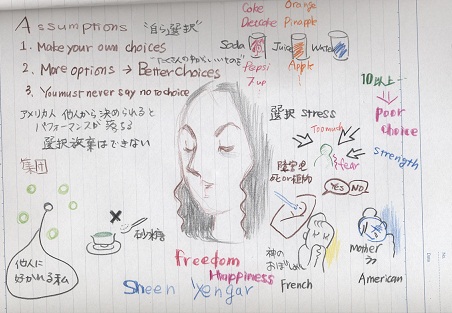 Assumptions
"自ら選択"
1. Make your own choices
2. More options → Better choices
3. You must never say no to choice
アメリカ人 他人から決められると
パフォーマンスが落ちる
選択放棄はできない
Coke
Diet coke
Orange
Pinapple
Soda
Juice
Water
Pepsi
7 up
Apple
10以上
Poor
choice
選択 stress
Too much
fear
strength
障害児
YES
NO
集団
他人に
好かれる私
砂糖
freedom
Happiness
Sheen Yengar
神の
おぼしめし
French
Mother
American